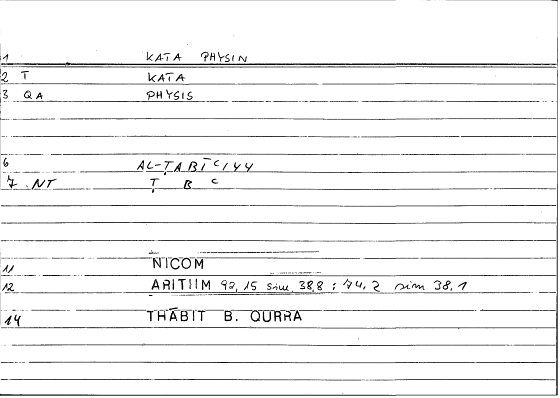 1 KATA PHYSIN
2 T KATA
3 QA PHYSIS
6 AL-ṬABĪʿIYY
7 NT Ṭ B ʿ
11 NICOM
12 ARITHM 92,15 sim. 38,8 ; 74,2 sim 38,1
14 THĀBIT B. QURRA